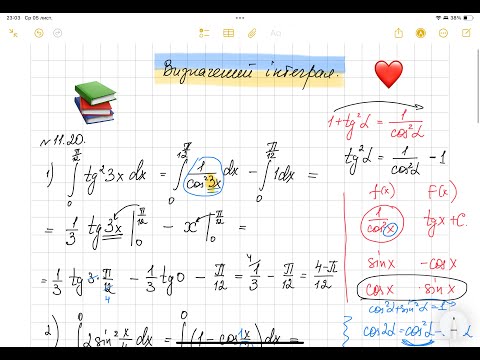 23:03 Ср 05 лист.
38%
Визначений інтеграл.
№11.20.
1) ∫₀^(π/12) tg²3x dx = ∫₀^(π/12) 1/cos²3x dx − ∫₀^(π/12) 1dx =
= 1/3 tg3x |₀^(π/12) − x |₀^(π/12) =
= 1/3 tg 3·π/12 − 1/3 tg0 − π/12 = 1/3 − π/12 = 4-π/12
4
4
1+tg²α = 1/cos²α
tg²α = 1/cos²α − 1
f(x) F(x)
1/cos²x tgx + C.
sinx −cosx
cosx sinx
cos²α+sin²α=1
cos2α=cos²α−
2) 2sin² x dx = ∫₀ (1−cos x